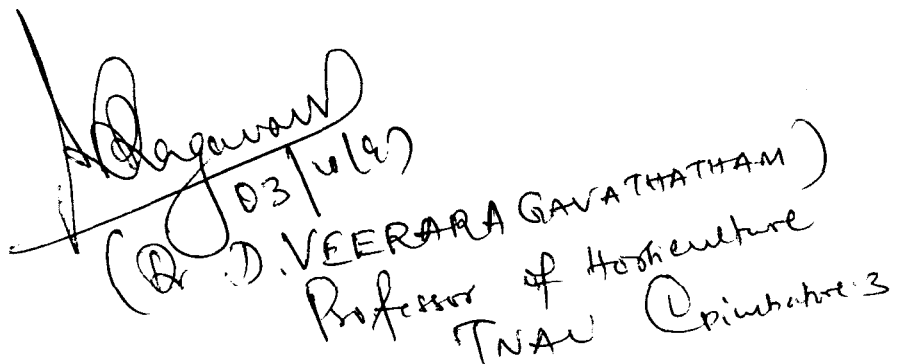 DRagavan
03/4/97
(Dr. D. VEERARAGAVATHATHAM)
Professor of Horticulture
TNAU Coimbatore. 3